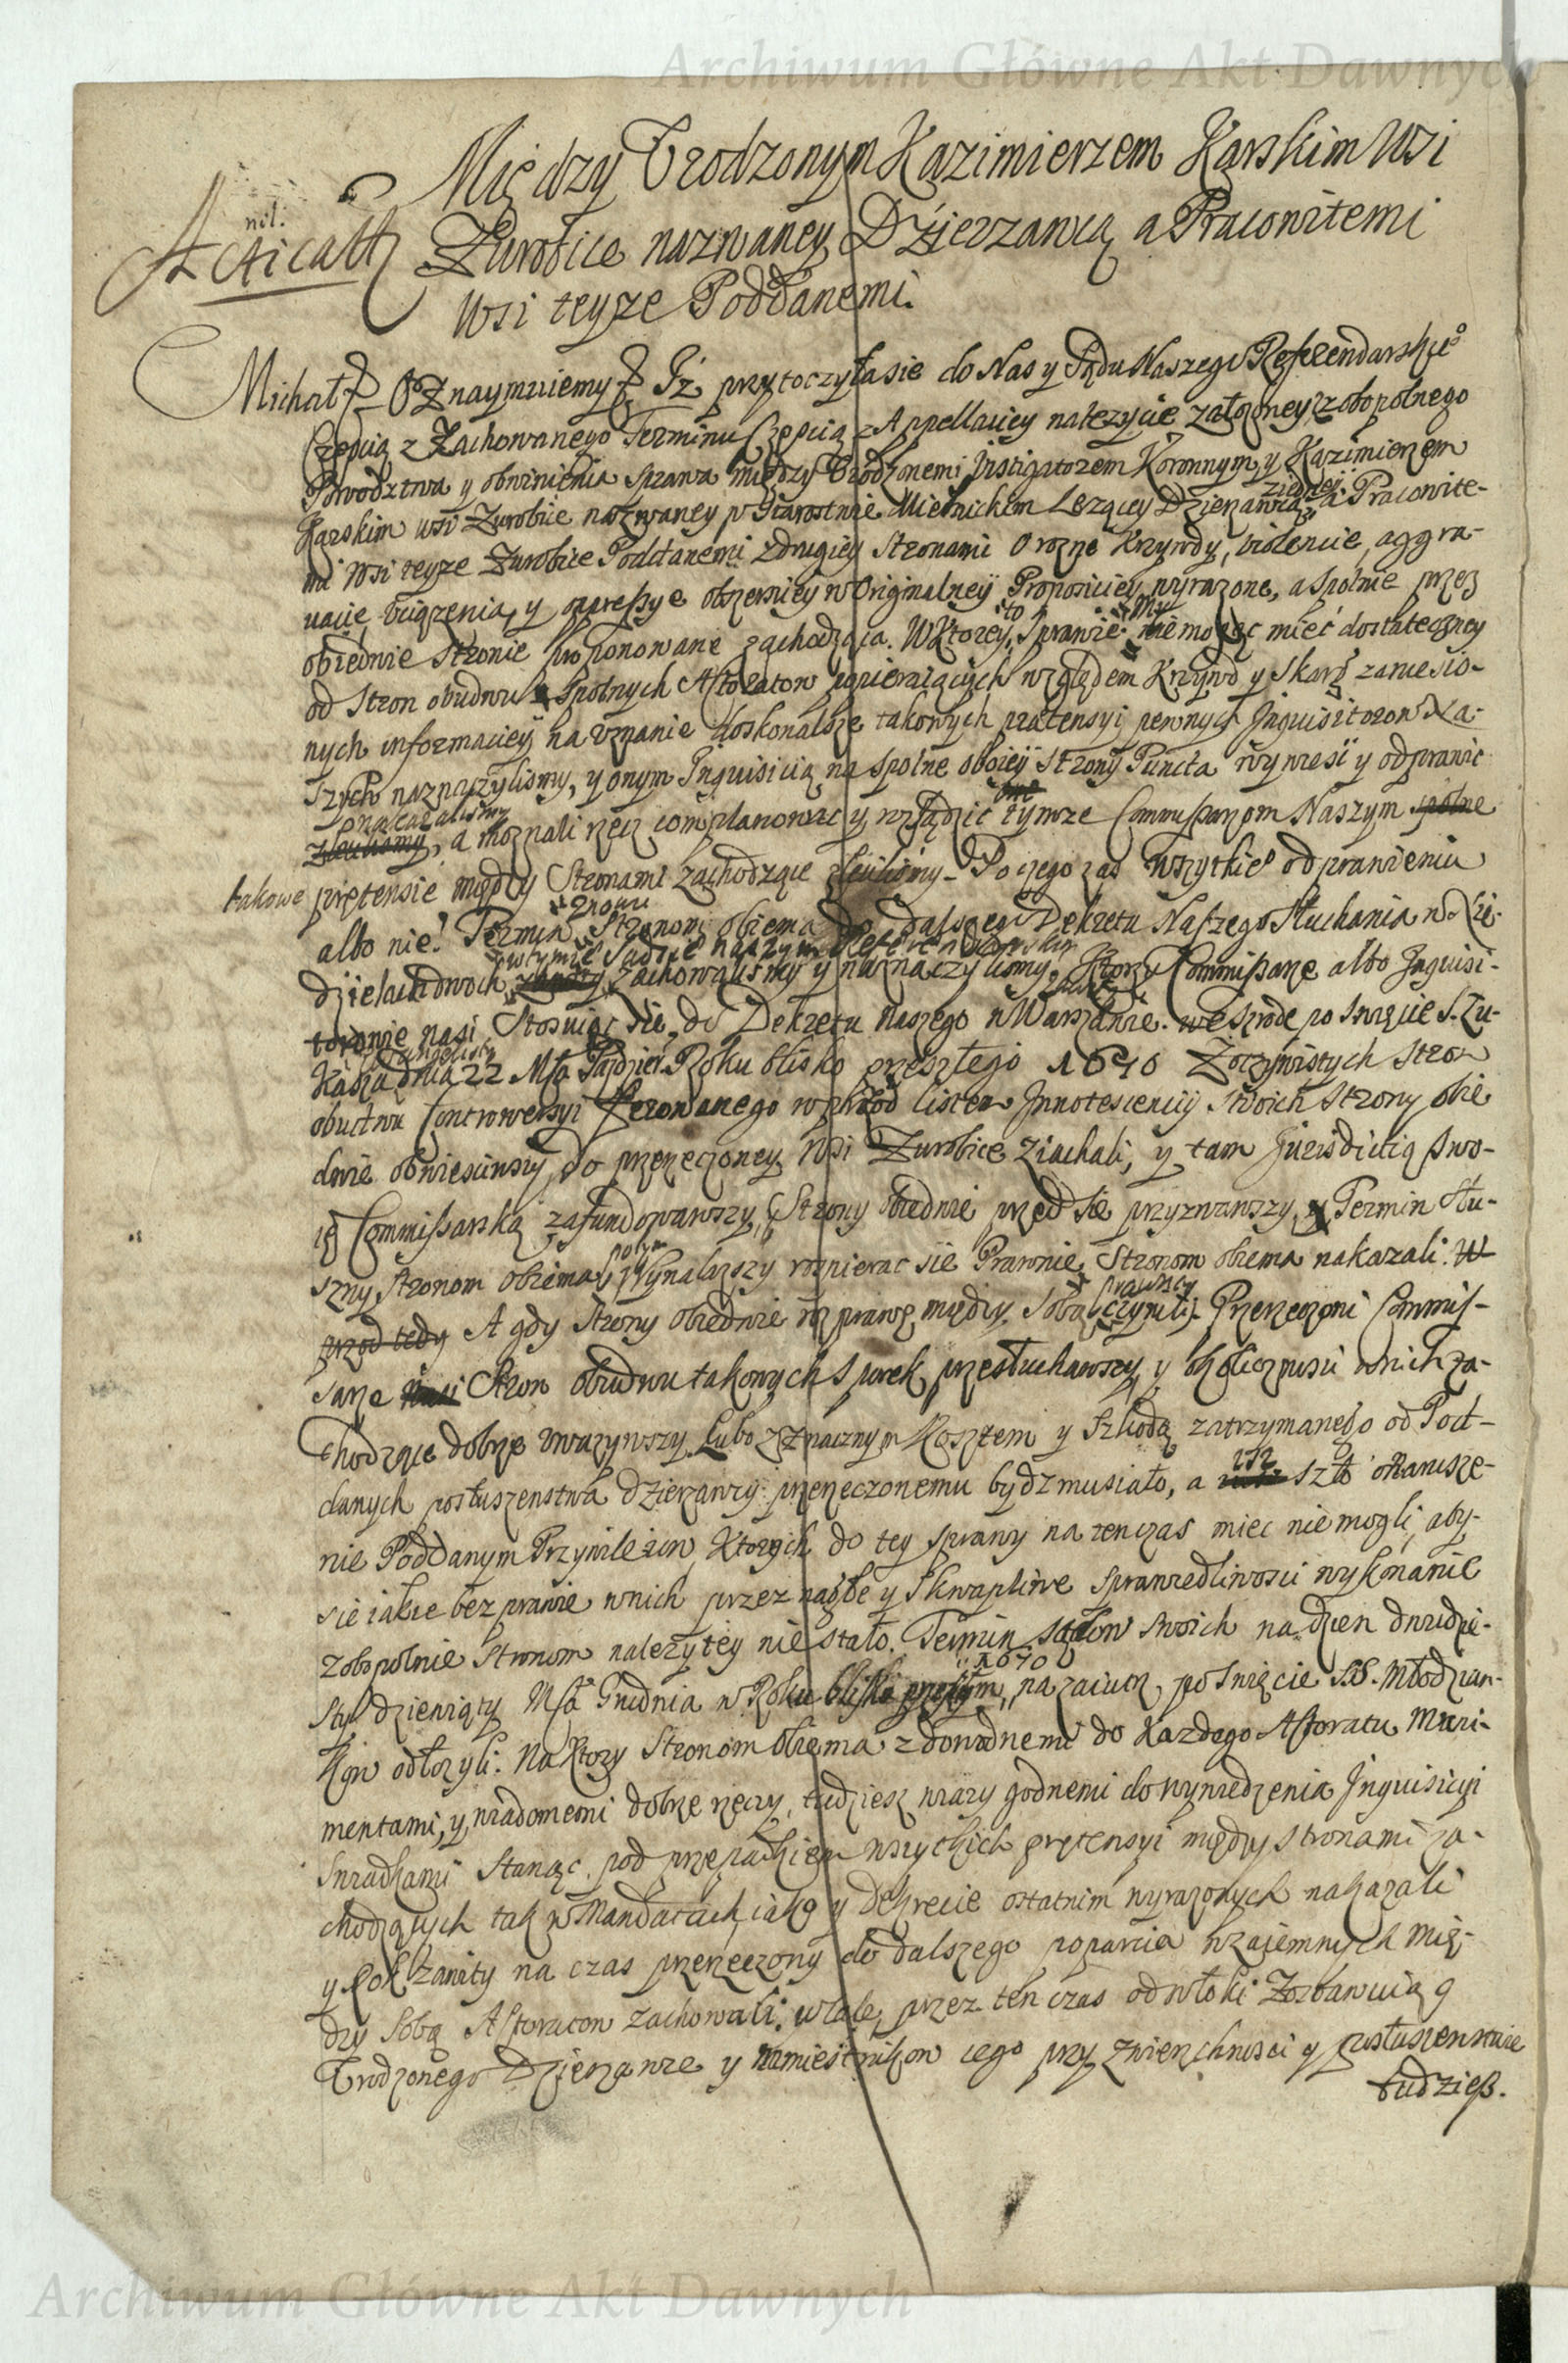 Archiwum Główne Akt Dawnych
Między Vrodzonym Kazimierzem Karskim wsi
Zurobice nazwaney Dzierzawcą a Pracowitemi
wsi teyze Poddanemi.
Michał Oznaymuiemy Iż przytoczyłasie do Nas y Sądu Naszego Referendarskieo
Częscią z Zachowanego Terminu Częscią z Appellaciey nalezycie załozoney zobopolnego
Powodztwa y obwinienia sprawa między Vrodzonemi Instigatorem Koronnym, y Kazimierzem
Karskim wsi Zurobice nazwaney w Starostwie Mielnickim Lezącey Dzierzawcą, z iedney a Pracowite-
mi wsi teyze Zurobice Poddanemi z drugiey Stronami o rozne Krzywdy, violencie, aggra-
uacie, Vciązenia, y oppressye obszerniey w Originalney Propoziciey wyrazone, a spolnie przez
obiedwie Stronie proponowane zachodząca. W Ktorey to Sprawie My nie mogąc mieć dostateczney
od Stron obudwu spolnych Aktoratow popieraiących względem Krzywd y Skarg zaniesio-
nych informaciey na vznanie doskonalsze takowych praetensyi pewnych Inquisitorow Na-
szych naznaczylismy, y onym Inquisicią na spolne oboiey Strony Puncta wywiesć y odprawić
nakazalismy, a moznali rzecz complanowac y vrządzic tymze Commissarzom Naszym
takowe prętensie między Stronami zachodzące zlecilismy. Po czego zas wszytkiego odprawieniu
albo nie! Termin znowu Stronom obiema do dalszego Dekretu Naszego Słuchania w Nie-
dzielach dwoch w tymze Sądzie naszym Referendarskim zachowalismy y naznaczylismy. Ktorzy Commissarze albo Inquisi-
torowie nasi Stosuiąc się do Dekretu naszego w Warszawie we Srode po Swięcie S. Łu-
kasza Ewangelisty dnia 22 Msa Pazdzier. Roku blisko przeszłego 1670 Zoczywistych Stron
obudwu Controwersyi ferowanego wprzod listem Innotescenciy swoich Strony obie
dwie obwiesciwszy, do przerzeczoney wsi Zurobice ziachali, y tam Jurisdictią swo-
ię Commissarską zafundowawszy, Strony obiedwie przed sie przyzwawszy, y Termin słu-
szny Stronom obiema Wynalazszy rospierac sie Prawnie Stronom obiema nakazali.
A gdy Strony obiedwie rosprawę między sobą prawny czynili, Przerzeczoni Commis-
sarze Stron obudwu takowych sporek przesłuchawszy y okolicznosci w nich za-
chodzące dobrze vwazywszy Lubo z znacznym Kosztem y Szkodą zatrzymanego od Pod-
danych posłuszenstwa dzierzawcy przerzeczonemu bydz musiało, a isz szło o Stanisze-
nie Poddanym Przywileiow, Ktorych do tey sprawy na tenczas miec nie mogli, aby-
sie iakie bezprawie w nich przez nagłe y skwapliwe sprawiedliwosci wykonanie
zobopolnie Stronom nalezytey nie stało. Termin sądow swoich na dzien dwudzie-
sty dziewiąty Msa Grudnia w Roku 1670 nazaiutrz po Swięcie SS. Młodzian-
kow odłozyli. Na Ktory Stronom obiema z dowodnemi do Kazdego Aktoratu Muni-
mentami, y wiadomemi dobrze rzeczy, tudziesz wiary godnemi do wywiedzenia Inquisicyi
Swiadkami Stanąc pod przepadkiem wszytkich prętensyi między Stronami za-
chodzących tak w Mandatach iako y dekrecie ostatnim wyrazonych nakazali
y Rok zawity na czas przerzeczony do dalszego poparcia wzaiemnych mię-
dzy sobą Aktoratow zachowali, wcale przez ten czas odwłoki Zostawuiąc
Vrodzonego Dzierzawce y namiestnikow iego przy zwierzchnosci y posłuszenstwie
tudziesz.
Archiwum Główne Akt Dawnych